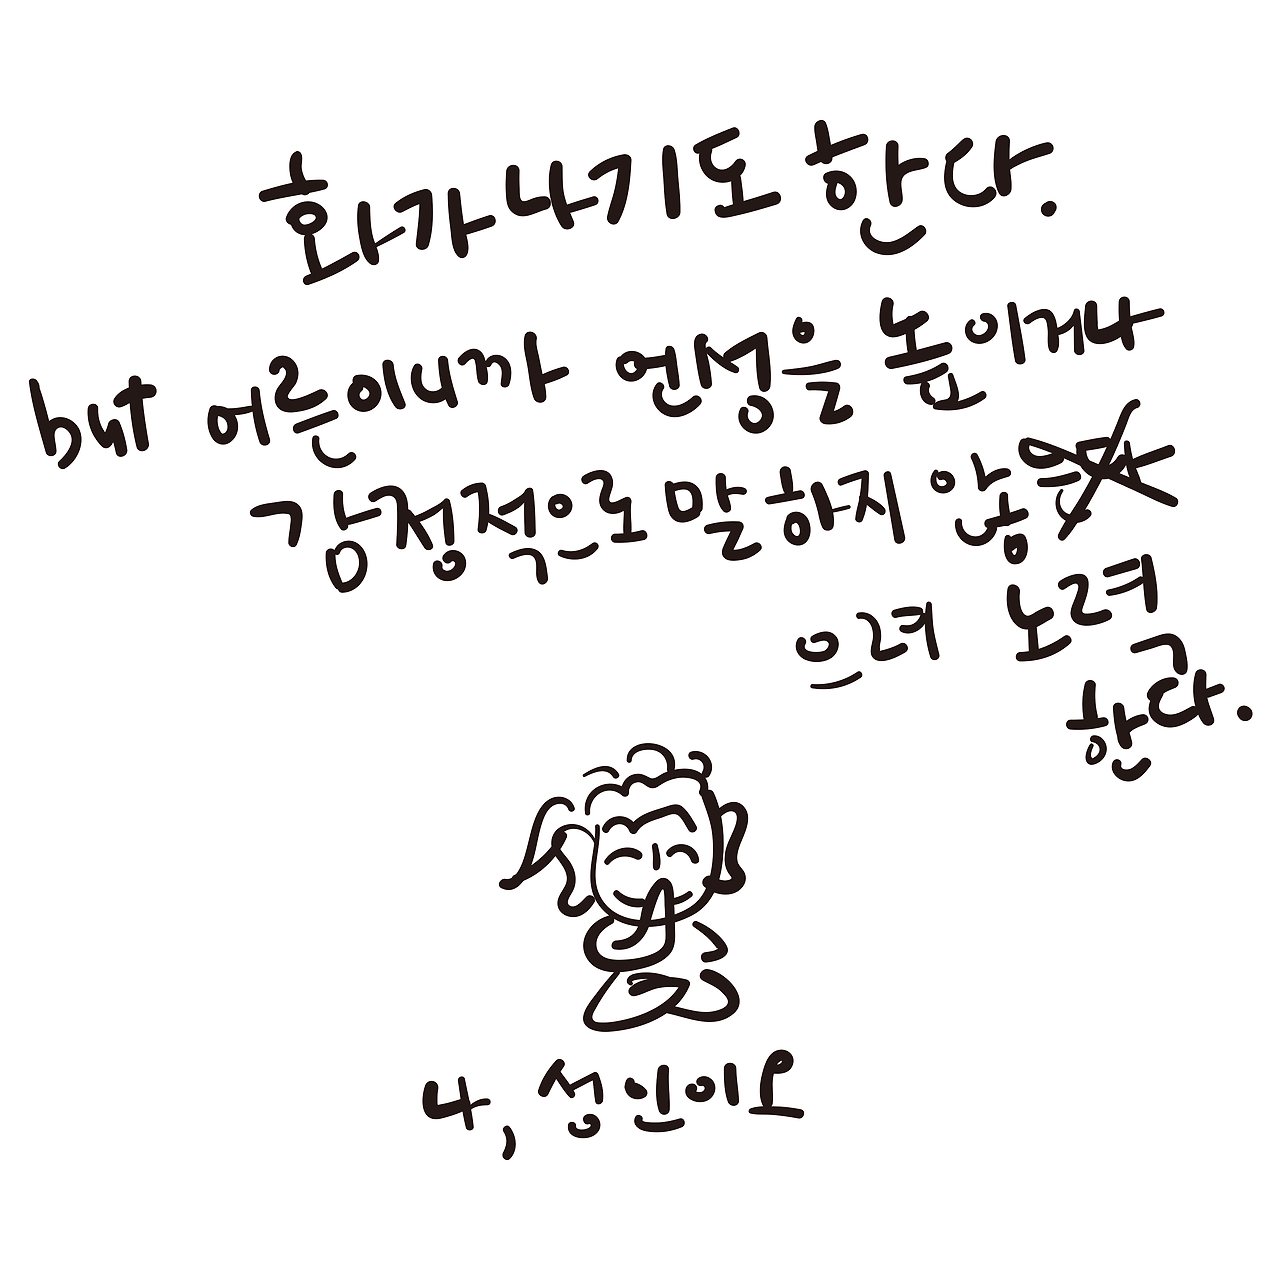 화가 나기도 한다.
but 어른이니까 언성을 높이거나
감정적으로 말하지 않
으려 노력
한다.
나, 성인이오